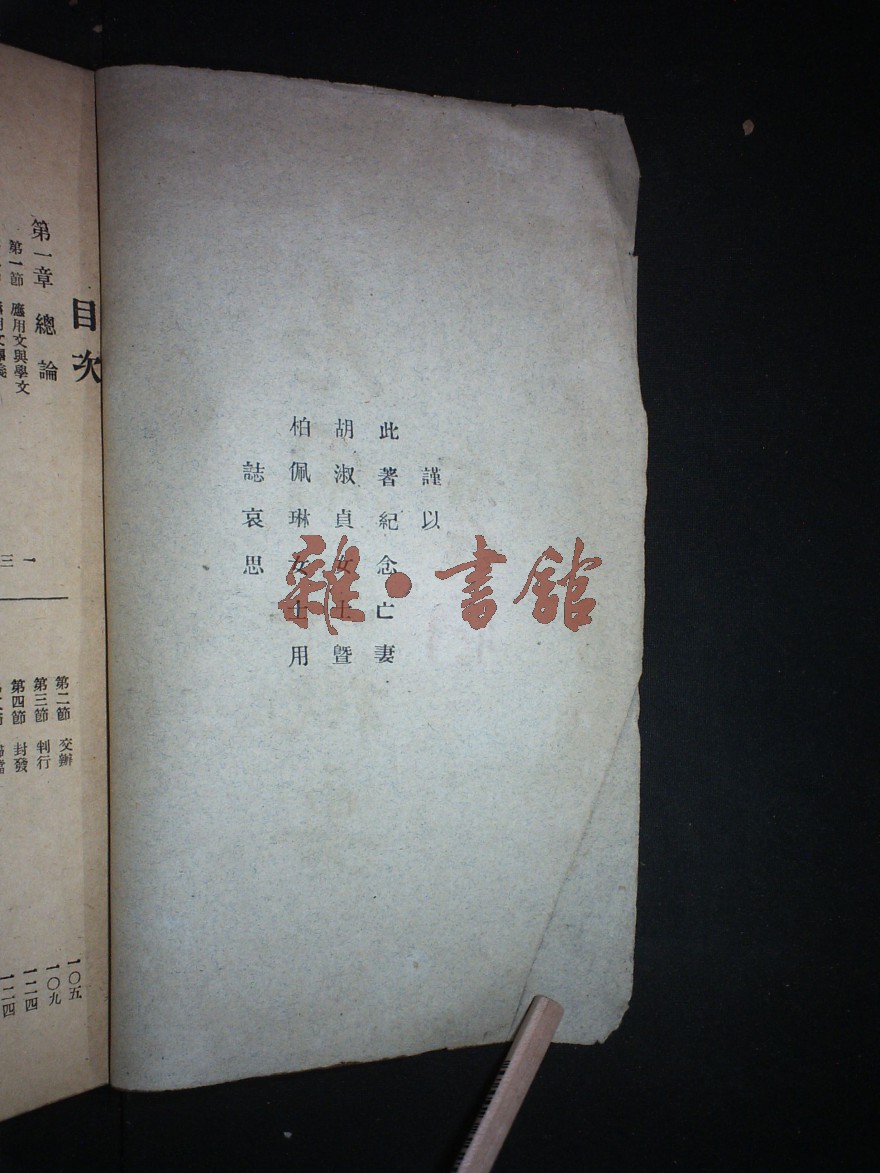 謹以
此著紀念亡妻
胡淑貞女士暨
柏佩琳女士用
誌哀思
雜·書館
目次
第一章 總論
第一節 應用文與學文
一
三
第二節 交辦
一〇五
第三節 判行
一〇九
第四節 封發
一二四
一二四